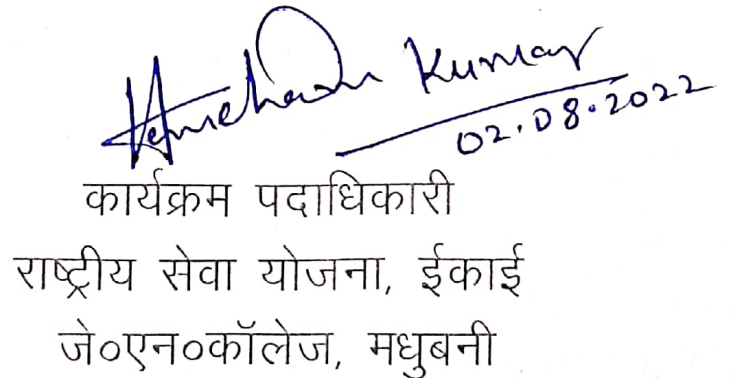 Hemchandra Kumar
02.08.2022
कार्यक्रम पदाधिकारी
राष्ट्रीय सेवा योजना, ईकाई
जे०एन०कॉलेज, मधुबनी